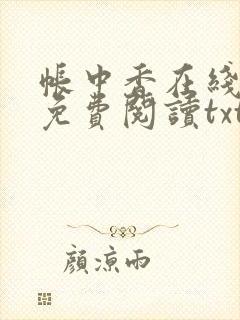 帳中香在綫
免費閱讀txt
顏涼雨